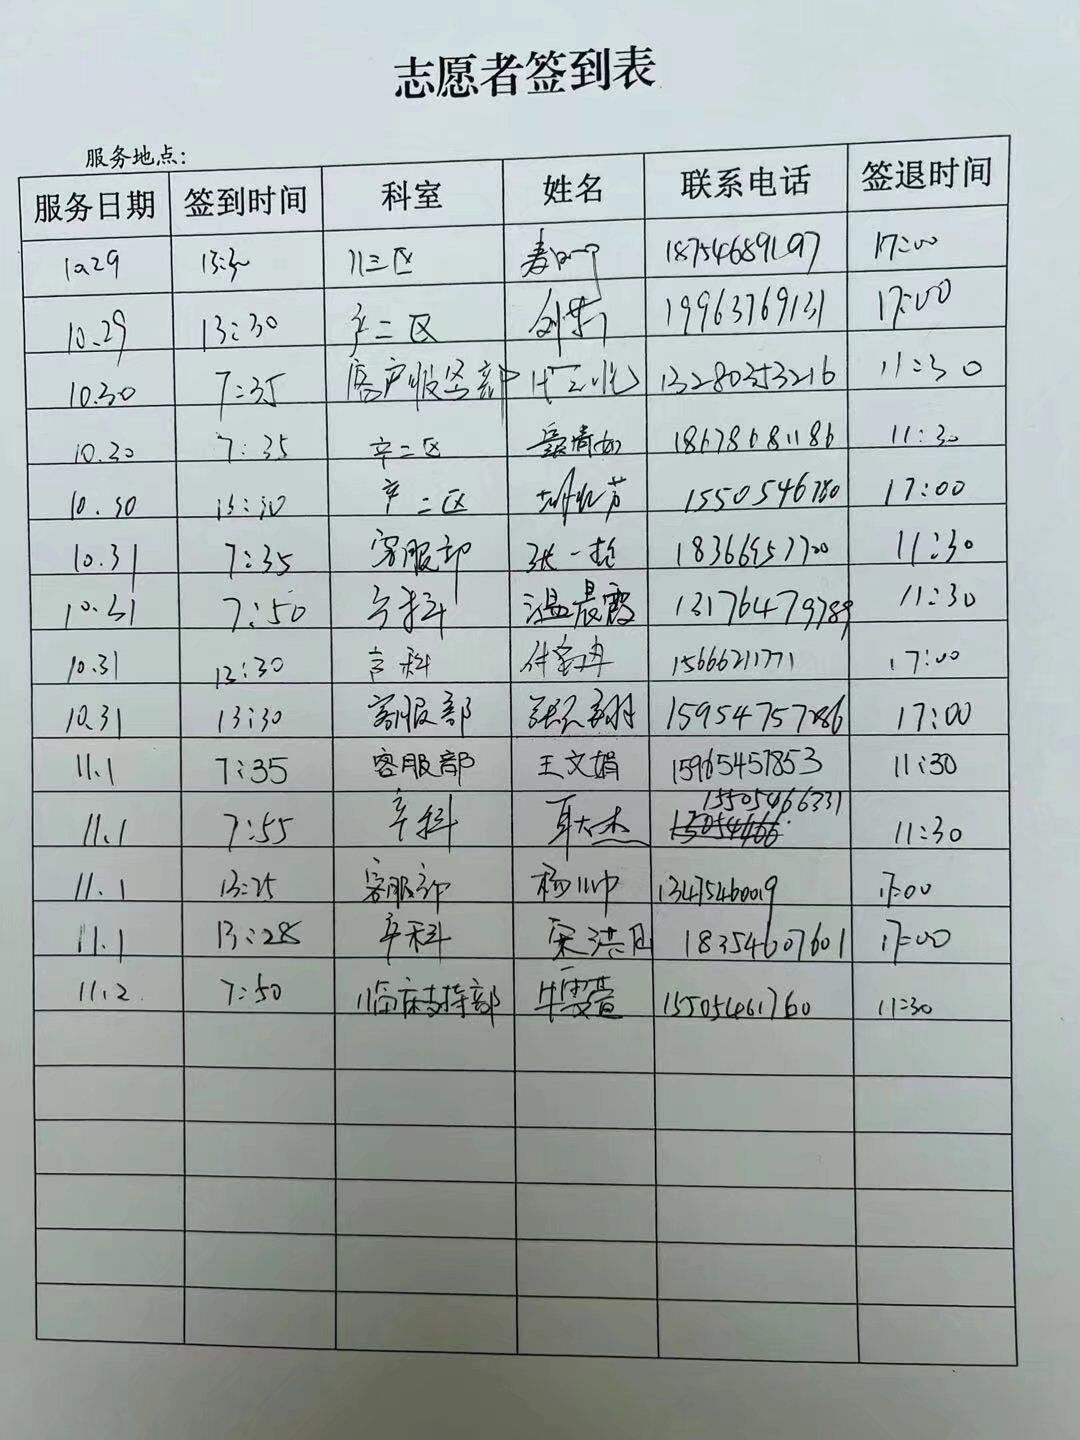 志愿者签到表
服务地点:
服务日期 签到时间 科室 姓名 联系电话 签退时间
10.29 13:30 儿三区 18754689197 17:00
10.29 13:30 产二区 19963769131 17:00
10.30 7:35 13280353216 11:30
10.30 7:35 产二区 18678681186 11:30
10.30 13:30 产二区 1550546780 17:00
10.31 7:35 客服部 张一 18366957700 11:30
10.31 7:50 产科 温晨霞 13176479789 11:30
10.31 13:30 产科 15666211771 17:00
10.31 13:30 客服部 15954757286 17:00
11.1 7:35 客服部 王文娟 15965457853 11:30
11.1 7:55 产科 15505466331 11:30
11.1 13:25 客服部 杨 13475460019 17:00
11.1 13:28 产科 宋洪 18354607601 17:00
11.2 7:50 临床支持部 15505461760 11:30